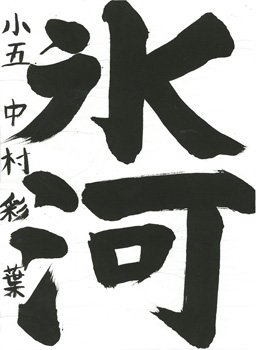 氷河
小五 中村彩葉